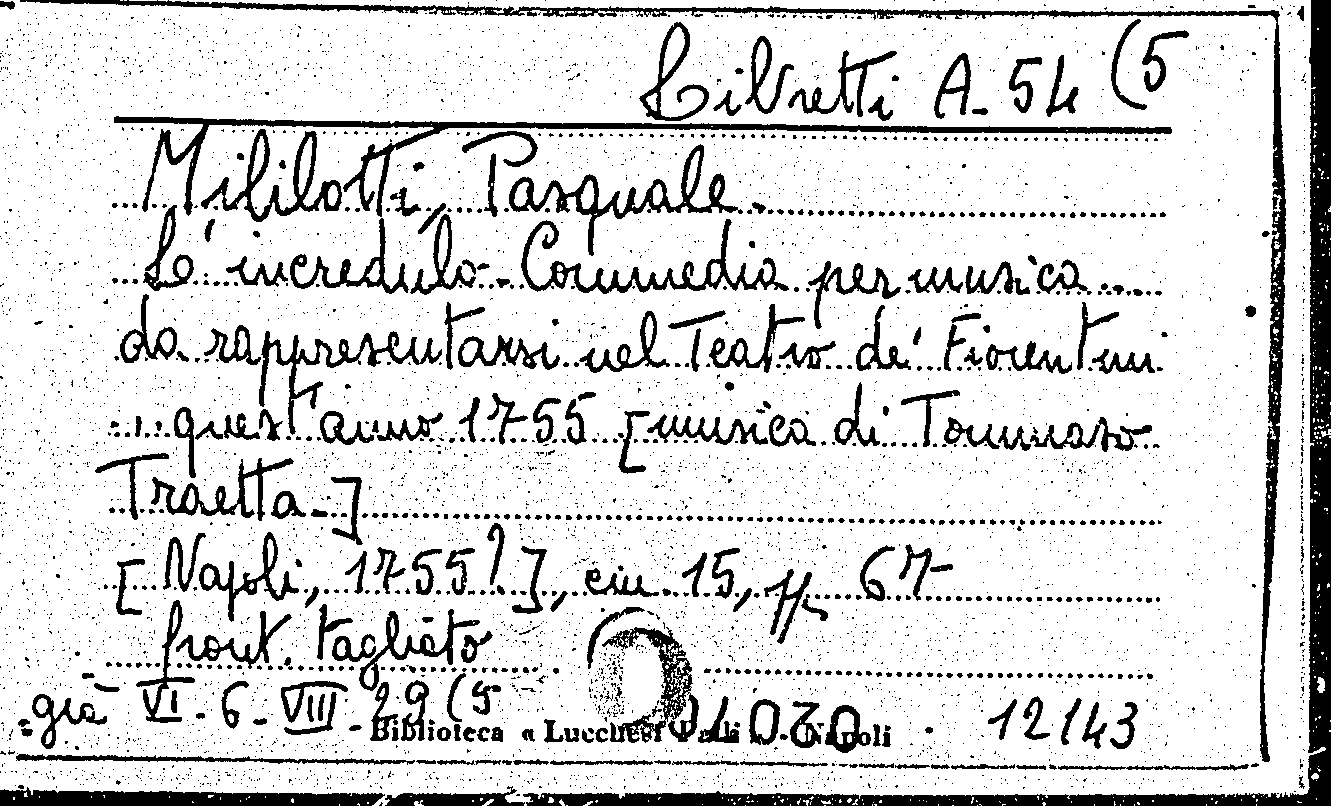 Libretti A. 54 (5
Mililotti, Pasquale.
L'incredulo. Commedia per musica...
da rappresentarsi nel Teatro de' Fiorentini
...quest'anno 1755 [musica di Tommaso
Traetta.]
[Napoli, 1755?], cm. 15, pp. 67
front. tagliato
già VI-6-VIII-29(5
Biblioteca « Lucchesi Palli » - Napoli
12143